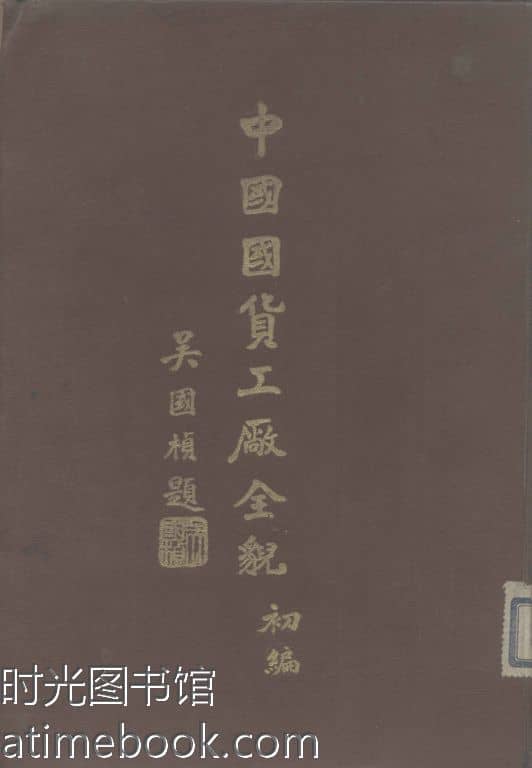 中國國貨工廠全貌 初編
吴國楨題
时光图书馆
atimebook.com